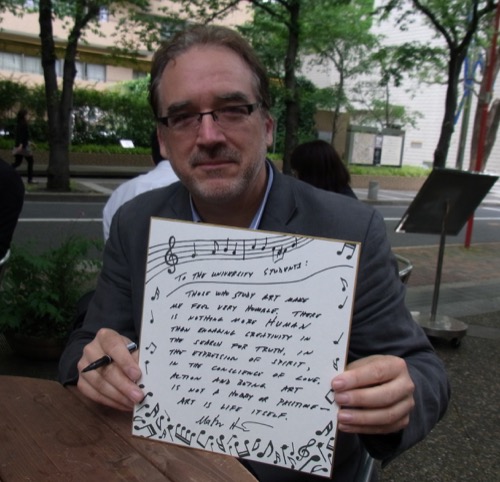 TO THE UNIVERSITY STUDENTS:
THOSE WHO STUDY ART MAKE
ME FEEL VERY HUMBLE. THERE
IS NOTHING MORE HUMAN
THAN ENGAGING CREATIVITY IN
THE SEARCH FOR TRUTH, IN
THE EXPRESSION OF SPIRIT,
IN THE CONSCIENCE OF LOVE,
ACTION AND BEING. ART
IS NOT A HOBBY OR PASTIME—
ART IS LIFE ITSELF.